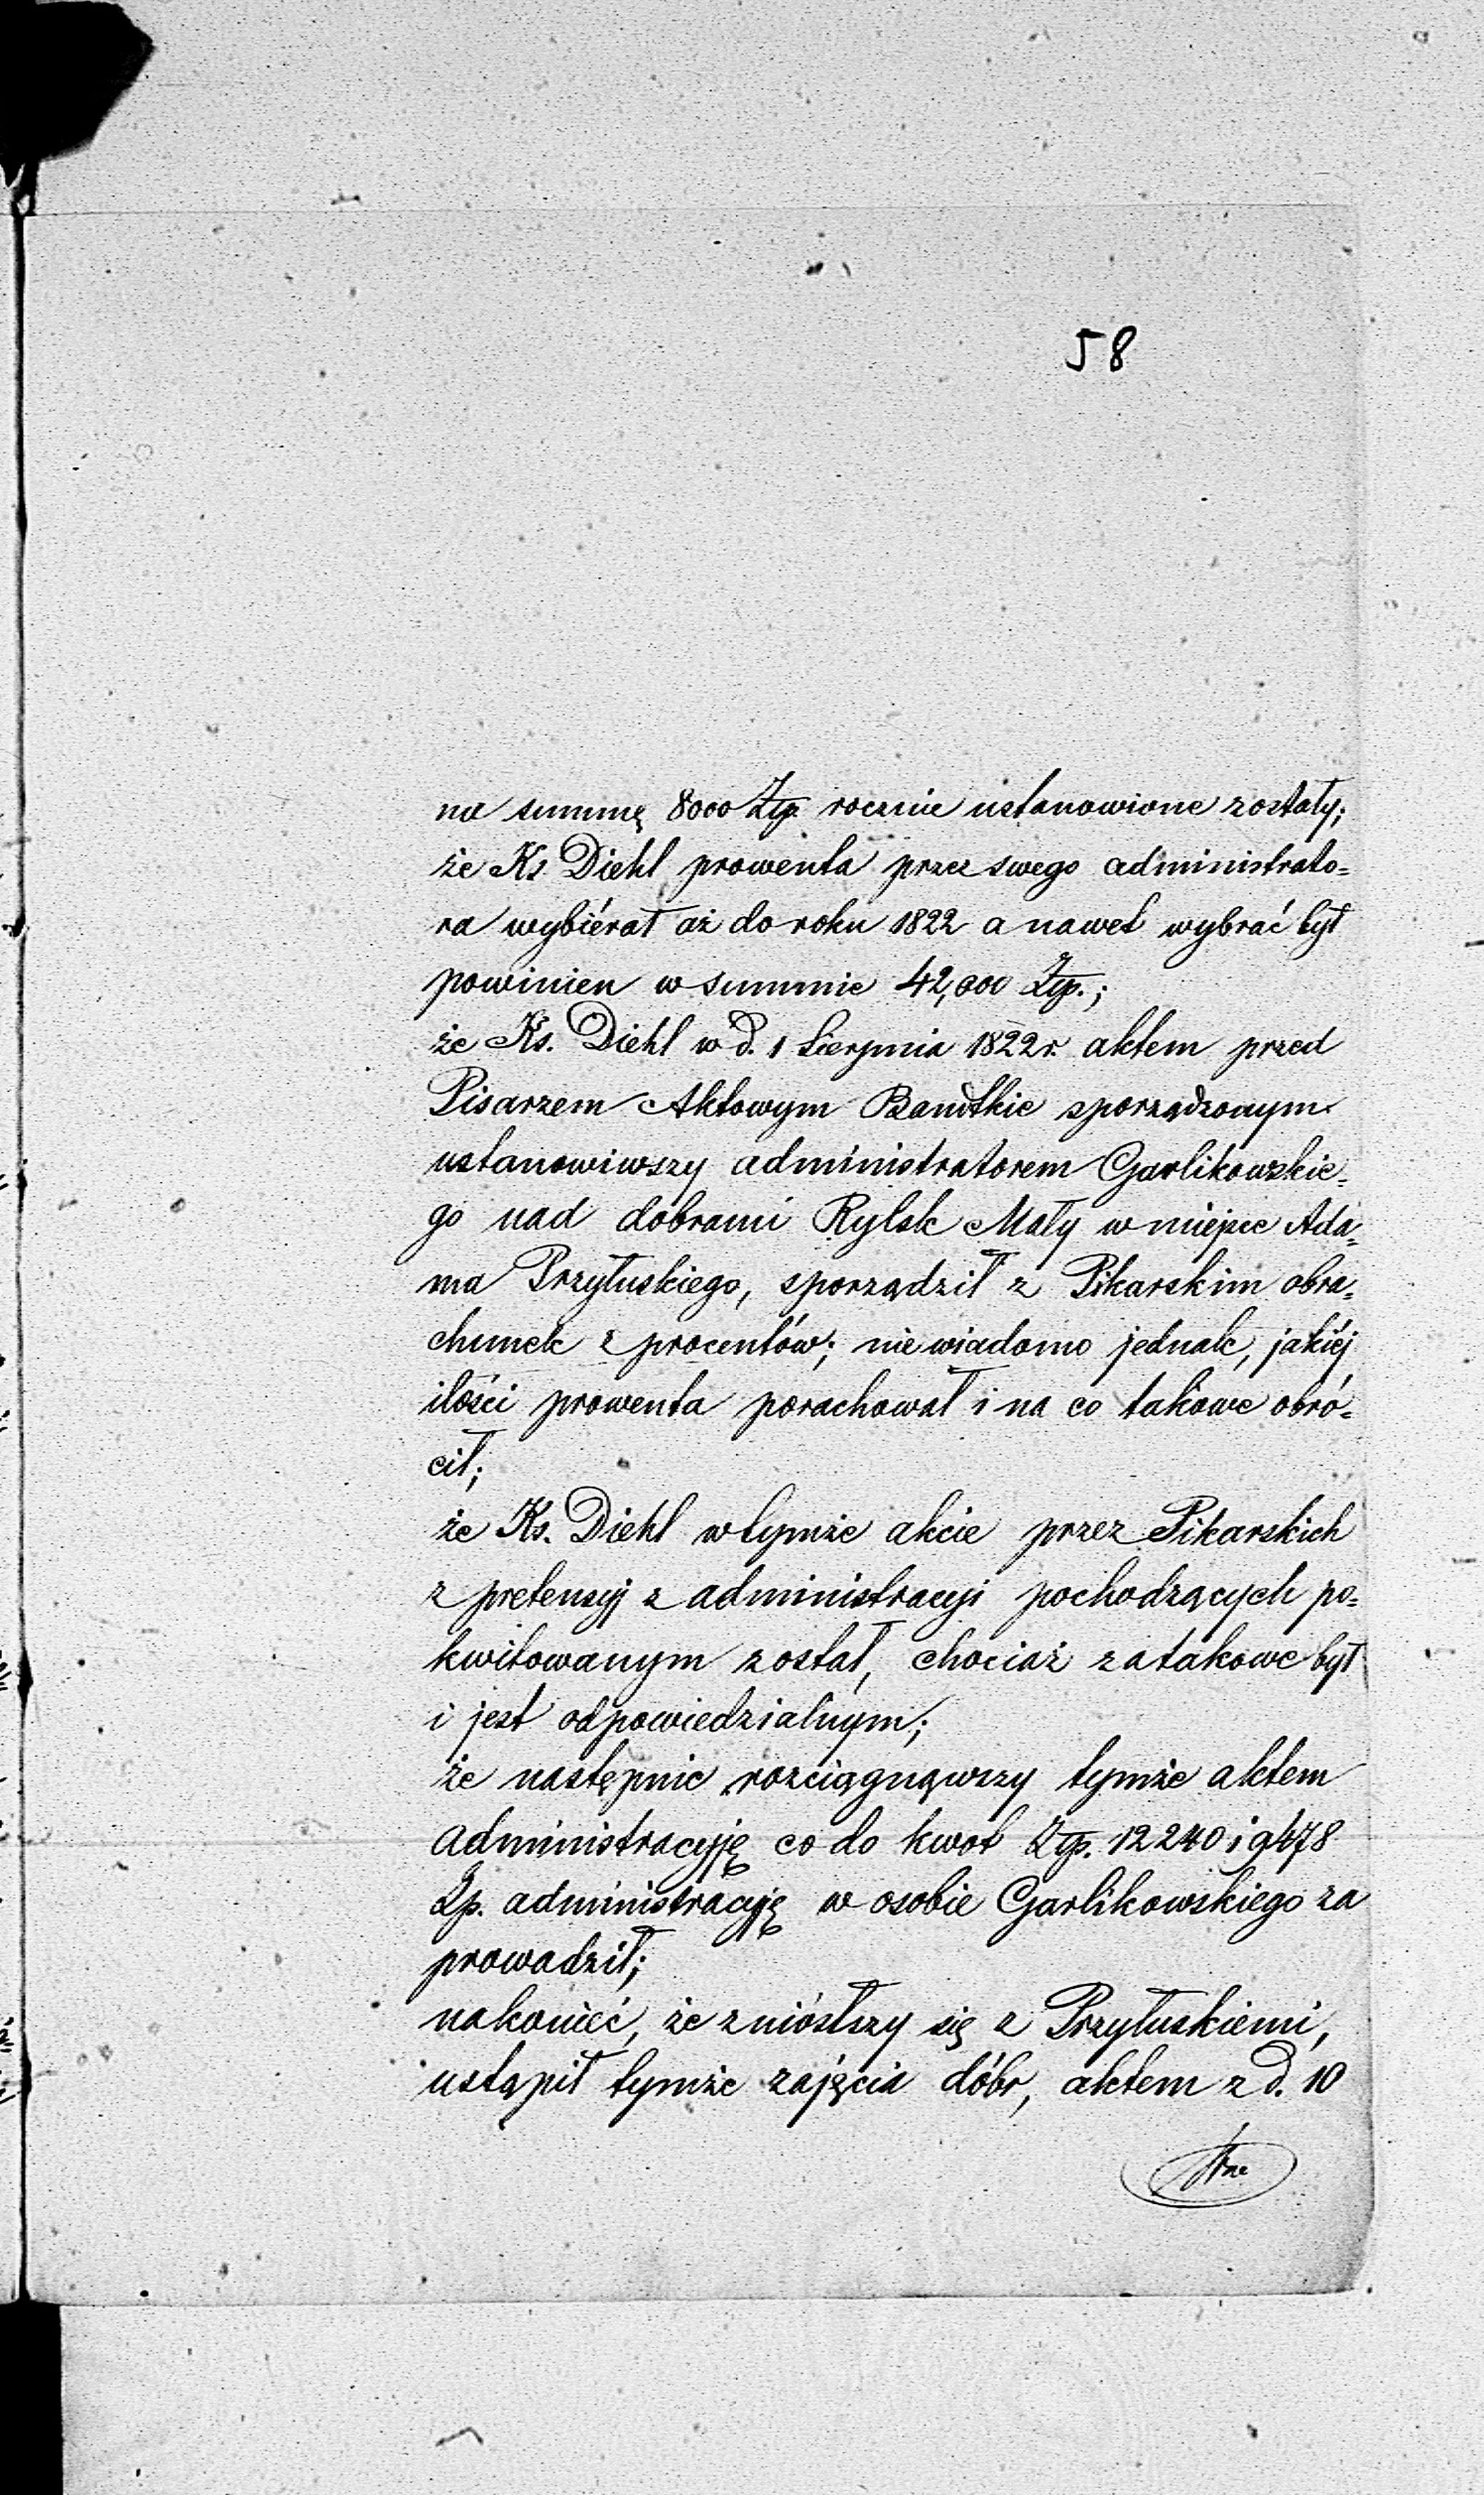 58
na summę 8000 Złp. rocznie ustanowione zostały;
że Ks. Diehl prowenta przez swego administrato=
ra wybiérał aż do roku 1822 a nawet wybrać był
powinien w summie 42,000 Złp.;
że Ks. Diehl w d. 1 Sierpnia 1822 r. aktem przed
Pisarzem Aktowym Bandtkie sporządzonym
ustanowiwszy administratorem Garlikowskie=
go nad dobrami Rylsk Mały w miejsce Ada=
ma Przyłuskiego, sporządził z Pikarskim obra=
chunek z procentów; nie wiadomo jednak, jakiéj
ilości prowenta porachował i na co takowe obró=
cił;
że Ks. Diehl w tymże akcie przez Pikarskich
z pretensyj z administracyi pochodzących po=
kwitowanym został, chociaż za takowe był
i jest odpowiedzialnym;
że następnie rozciągnąwszy tymże aktem
administracyję co do kwot Złp. 12240 i 9478
Zp. administracyję w osobie Garlikowskiego za
prowadził;
nakoniec, że zniósłszy się z Przyłuskiemi,
ustąpił tymże zajęcia dóbr, aktem z d. 10